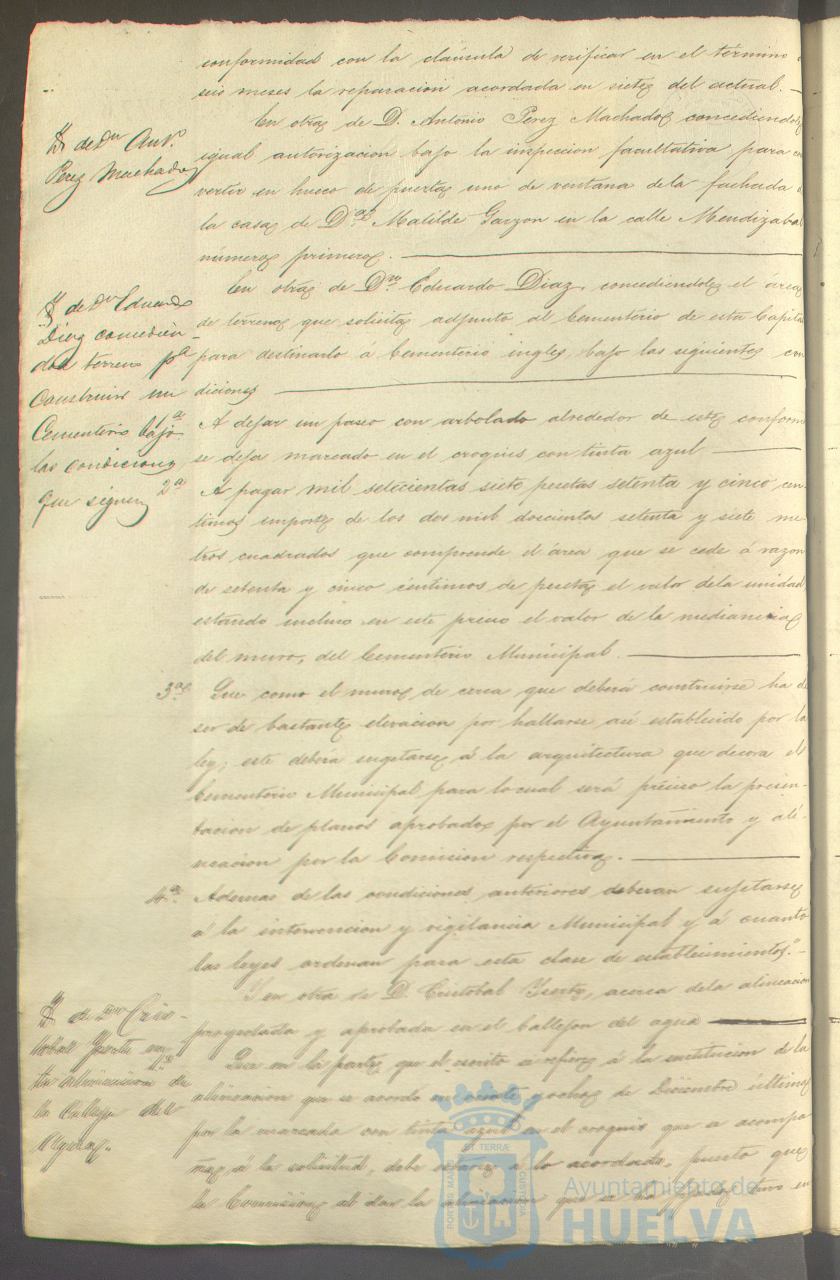 conformidad con la cláusula de verificar en el término
seis meses la reparacion acordada en siete del actual.
Yd. de Dn Ant.
Perez Machado
En otra de D. Antonio Perez Machado concediendole
igual autorizacion bajo la inspeccion facultativa para con
vertir en hueco de puerta uno de ventana de la fachada
la casa de Dª Matilde Garzon en la calle Mendizabal
número primero.
Yd. de Dn Eduardo
Diaz concedien
dole terreno pª
construir un
Cementerio bajo
las condiciones
que siguen
En otra de Dn Eduardo Diaz, concediendole el área
de terreno que solicita adjunto al Cementerio de esta Capital
para destinarlo á Cementerio ingles, bajo las siguientes con
diciones
1ª A dejar un paseo con arbolado alrededor de este conforme
se deja marcado en el croquis con tinta azul
2ª A pagar mil setecientas siete pesetas setenta y cinco cen
timos importe de los dos mil doscientos setenta y siete me
tros cuadrados que comprende el área que se cede á razon
de setenta y cinco céntimos de peseta el valor de la unidad
estando incluso en este precio el valor de la medianeria
del muro, del Cementerio Municipal.
3ª Que como el muro de cerca que deberá construirse ha de
ser de bastante elevacion por hallarse asi establecido por la
ley, este deberá sugetarse á la arquitectura que decora el
Cementerio Municipal para lo cual será preciso la presen-
tacion de planos aprobados por el Ayuntamiento y ali-
neacion por la Comision respectiva.
4ª Ademas de las condiciones anteriores deberan sujetarse
á la intervencion y vigilancia Municipal y á cuanto
las leyes ordenan para esta clase de establecimientos."
Yd. de Dn Cris-
tobal
la alineacion de
la Calleja del
Agua.
Y en otra de D. Cristobal, acerca de la alineacion
proyectada y aprobada en el Callejon del agua
Que en la parte que el escrito se refiere á la sustitucion de la
alineacion que se acordo en veinte y ocho de Diciembre último
por la marcada con tinta azul en el croquis que se acompa
ña á la solicitud, debe estarse á lo acordado, puesto que
la Comision al dar la alineacion que se tuvo en
PORTUS MARIS ET TERRÆ CUSTODIA
Ayuntamiento de
HUELVA